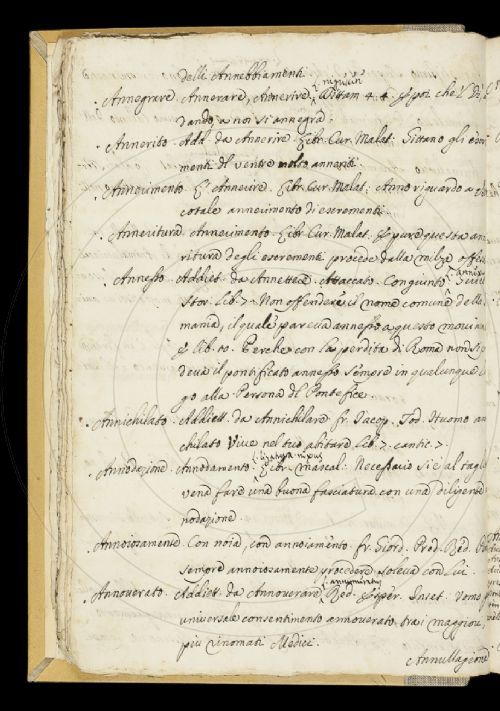 delli Annebbiamenti.
Annegrare. Annerare, Annerire. Dittam. 4. 4. che'l Di,
dando a noi si annegra.
Annerito. Add. da Annerire. Libr. Cur. Malat. Gittano gli escre
menti del ventre molto anneriti.
Annerimento. L' Annerire. Libr. Cur. Malat. Anno riguardo a
cotale annerimento di escrementi.
Anneritura. Annerimento. Libr. Cur. Malat. Eppure questa an
ritura degli escrementi procede dalla milza
Annesso. Addiet. da Annettere. Attaccato. Congiunto.
Stor. Lib. 7. Non offendere il nome comune della
mania, il quale pareva annesso a questo
E lib. 10. Perche con la perdita di Roma non si
deva il pontificato annesso sempre in qualunque
go alla Persona del Pontefice.
Annichilato. Addiett. da Annichilare. fr. Jacop. Tod. Huomo an
chilato Vive nel tuo abitare. Lib. 7. cantic. 7.
Annodazione. Annodamento. Libr. Mascal. Necessario sie al
vena fare una buona fasciatura con una diligente
nodazione
Annoiosamente. Con noia, con annoiamento. fr. Giord. Pred. Red.
sempre annoiosamente procedere soleva con lui.
Annoverato. Addiet. da Annoverare. Red. Esper. Inset. Uomo
universale consentimento annoverato tra i maggiori,
più rinomati Medici.
Annullagione